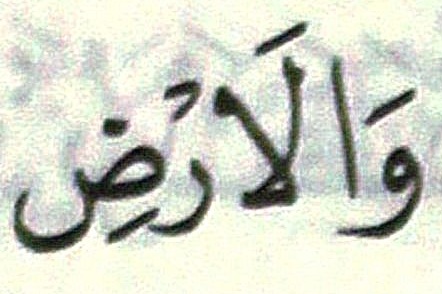 وَالَارْضِ